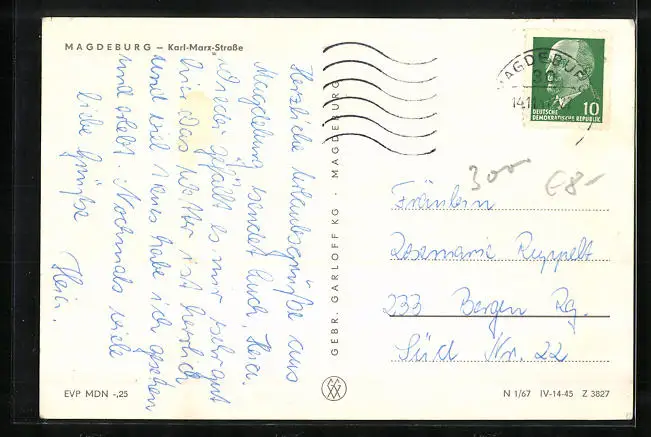 MAGDEBURG — Karl-Marx-Straße
Herzliche Urlaubsgrüße aus
Magdeburg sendet Euch, Heci.
Wieder gefällt es mir sehr gut
hier. Das Wetter ist herrlich
und viel neues habe ich gesehen
und erlebt. Nochmals viele
liebe Grüße
Heci.
GEBR. GARLOFF KG · MAGDEBURG
MAGDEBURG
30
14.11
10
DEUTSCHE
DEMOKRATISCHE REPUBLIK
3000
€8-
Fräulein
Rosemarie Ruppelt
233 Bergen Rg.
Süd Nr. 22
EVP MDN -,25
N 1/67 IV-14-45 Z 3827